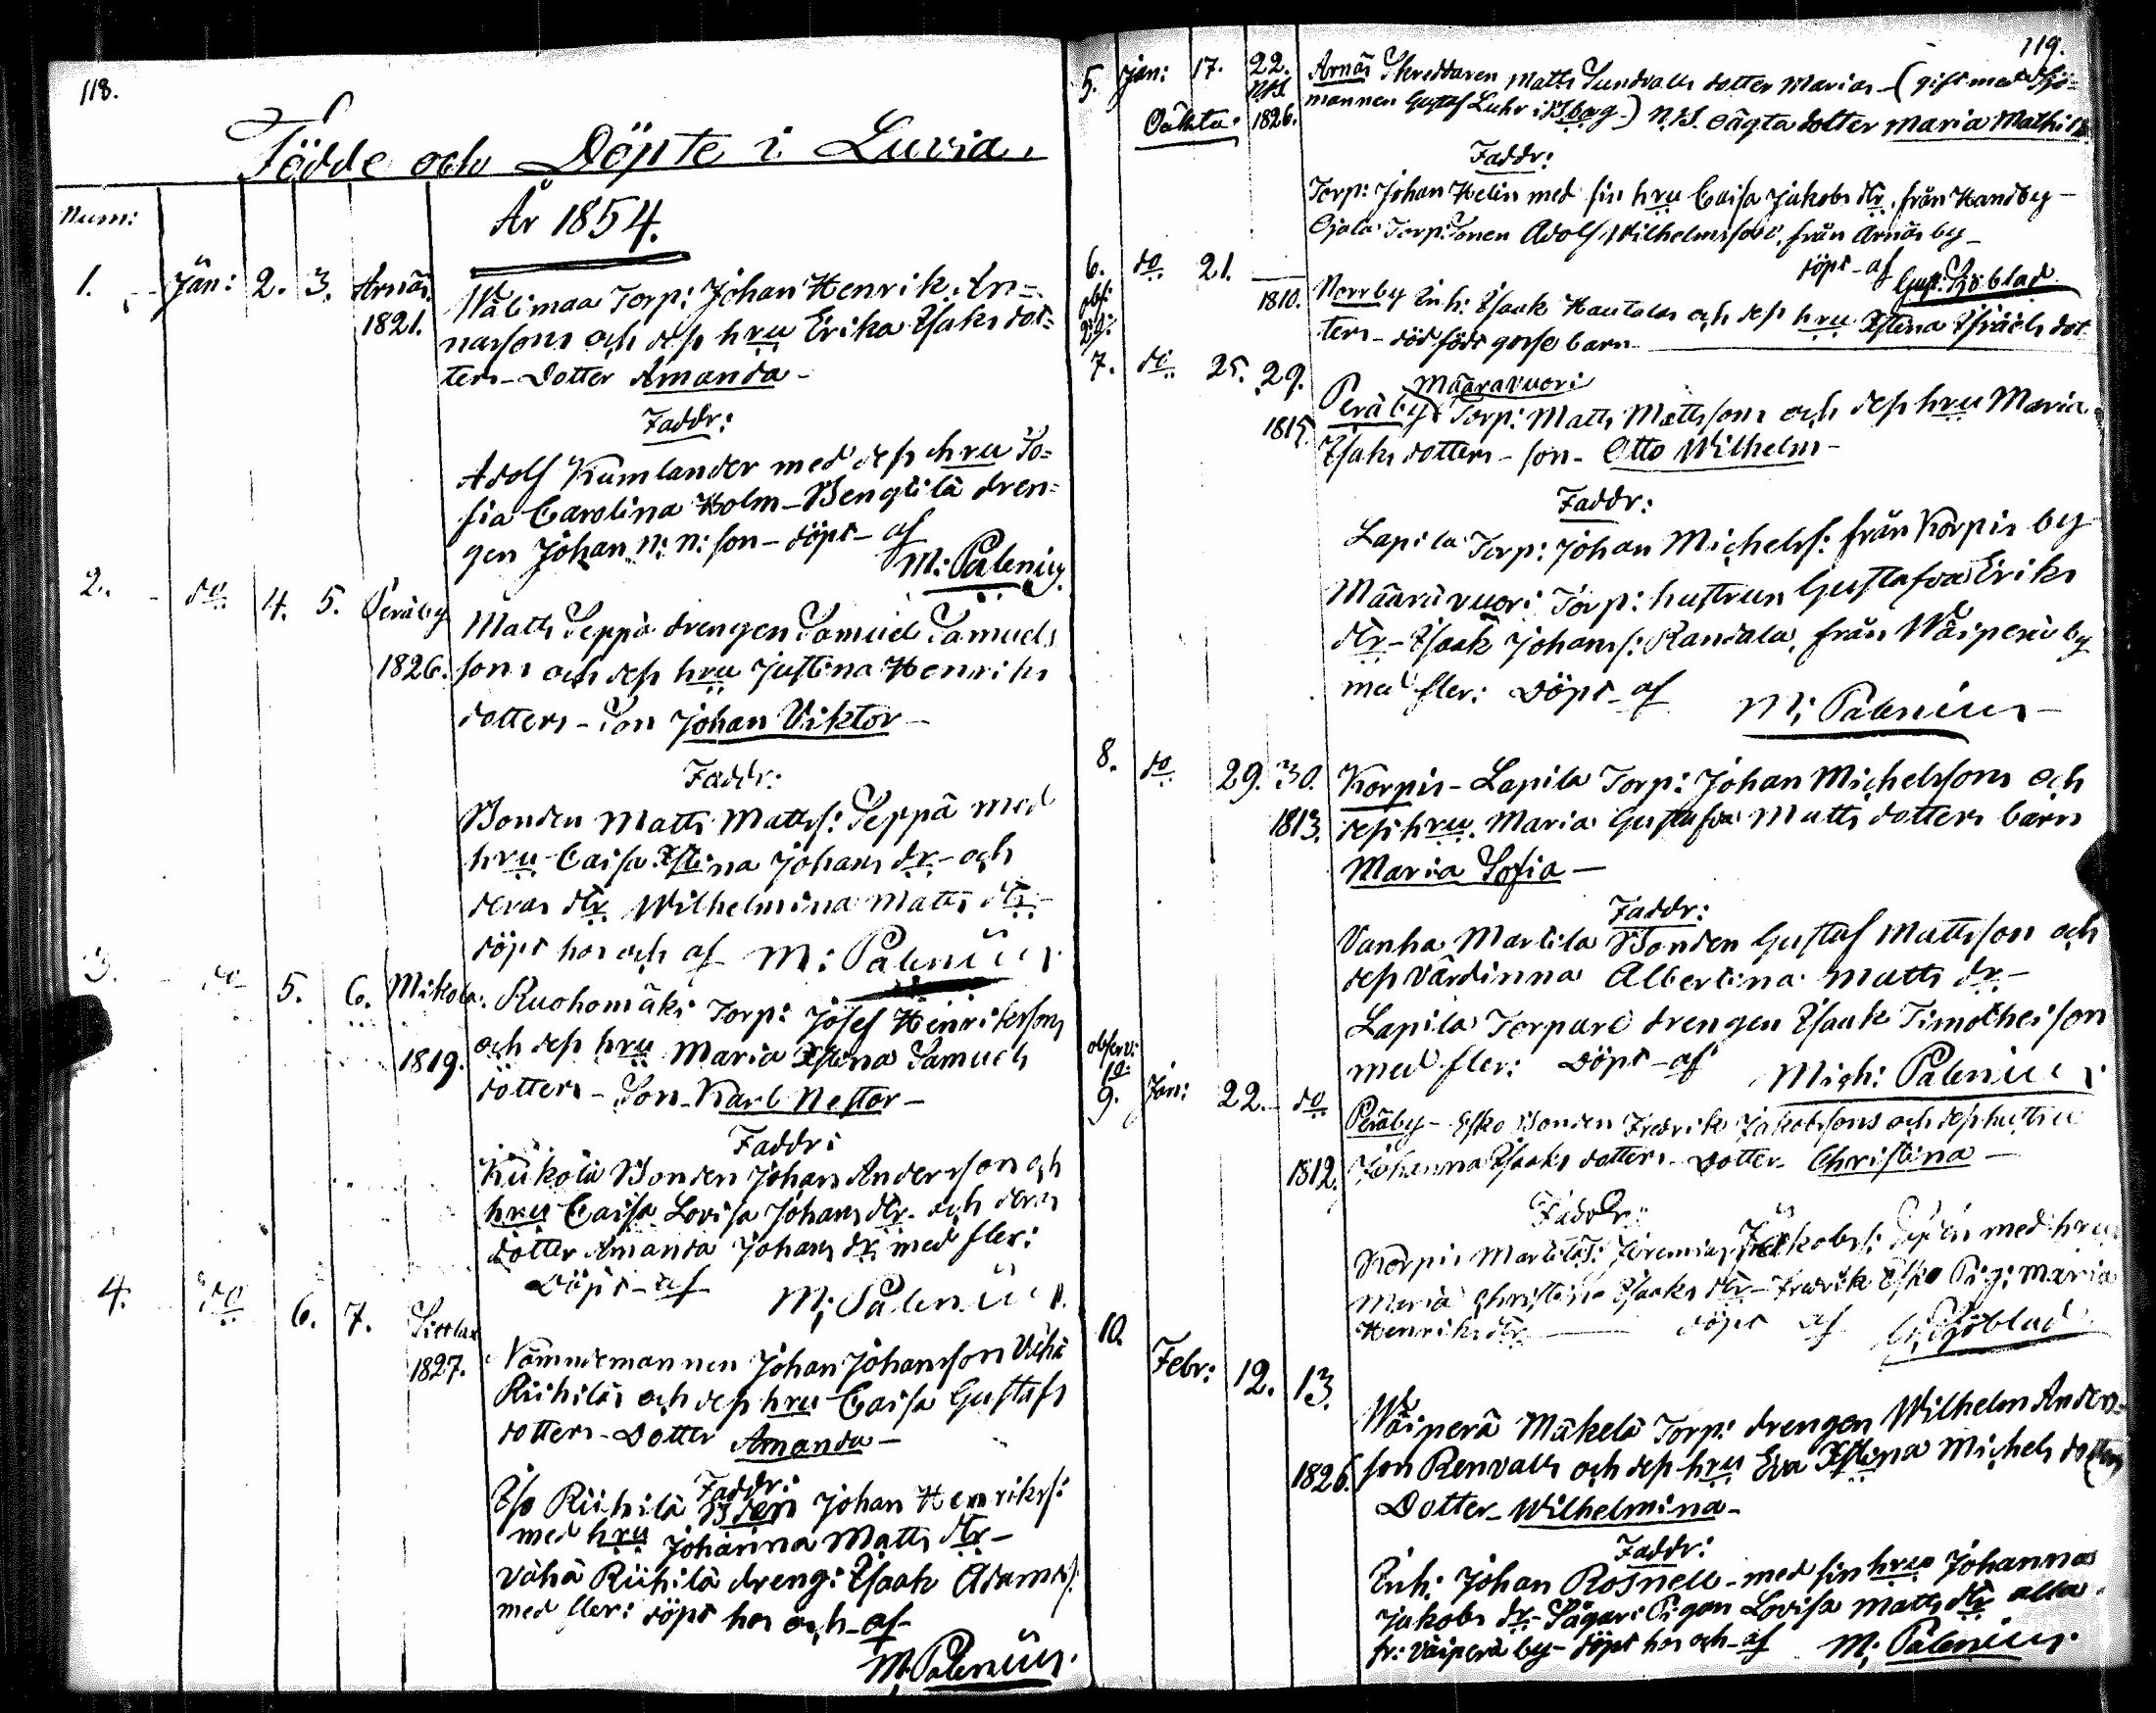 118.
Födde och Döpte i Luvia.
Num:
År 1854.
1. Jan: 2. 3. Arnäs Välimaa Torp: Johan Henrik Ar=
1821. narsons och dess hru Erika Isaks dot=
ters - Dotter Amanda -
Faddr:
Adolf Kumlander med dess hru So=
fia Carolina Holm - Bengtilä dren=
gen Johan N: N: son - döpt - af
M: Palenius
2. do 4. 5. Peräby Matts Seppä drengen Samuel Samuels
1826. sons och dess hru Justina Henriks
dotters - Son Johan Viktor -
Faddr:
Bonden Matts Mattss: Seppä med
hru Caisa Xstina Johans dr - och
deras dtr Wilhelmina Matts dtr -
döpt hos och af M: Palenius
3. do 5. 6. Mikola. Ruohomäki Torp: Josef Henrikssons
1819. och dess hru Maria Xstina Samuels
dotters - Son - Karl Nestor -
Faddr:
Kukola Bonden Johan Andersson och
hru Caisa Lovisa Johans dtr och deras
dotter Amanda Johans dr med fler:
Döpt - af M: Palenius
4. do 6. 7. Nämndemannen Johan Johansson Vähä
1827. Riihiläs och dess hru Caisa Gustafs
dotters - Dotter Amanda -
Faddr:
Iso Riihilä Bden Johan Henrikss:
med hru Johanna Matts dtr -
Vähä Riihilä dreng: Isaak Adamss:
med fler: döpt hos och af
M: Palenius.
119.
5. Jan: 17. 22. Arnäs Skreddaren Matts Sundvalls dotter Marias - (gift med Sjö=
N.B. mannen Gustaf Luhr i Bborg -) N.B. oägta dotter Maria Mathild
Oäkta. 1826.
Faddr:
Torp: Johan Helin med sin hru Caisa Jakobs dtr. från Hanby -
Ojala Torp: Sonen Adolf Wilhelmsson, från Arnäs by -
döpt - af Gust: Sjöblad
6. do 21. — Norrby Inh: Isaak Hautalas och dess hru Xstina Isräels dot
1810. ters - dödfödt gosse barn
7. do 25. 29. Määrävuori
Peräby Torp: Matts Mattssons och dess hru Maria
1815. Isaks dotters - son - Otto Wilhelm -
Faddr:
Lapila Torp: Johan Michelss: från Korpis by
Määrävuori Torp: hustrun Gustafva Eriks
dtr - Isaak Johanss: Randala, från Wäiperä by
med fler: Döpt - af M: Palenius -
8. do 29. 30. Korpis - Lapila Torp: Johan Michelssons och
1813. dess hru Maria Gustafva Matts dotters barn
Maria Sofia -
Faddr:
Vanha Martila Bonden Gustaf Mattsson och
dess värdinna Albertina Matts dr -
Lapila Torpare drengen Isaak Timotheison
med fler: Döpt - af Mich: Palenius
observ:
9. Jan: 22. do Peräby - Esko Bonden Fredrik Jakobssons och dess hustru
1812. Johanna Isaaks dotters - Dotter - Christina -
Faddr:
Korpis Martila Jeremias Jakobss: med hru
Maria Christina Isaaks dtr - Fredrik Esko Pig: Maria
Henriks dtr — döpt af G: Sjöblad
10. Febr: 12. 13. Wäiperä Mäkelä Torp: drengen Wilhelm Anders=
1826. son Renvalls och dess hru Eva Xstina Michels dotters
Dotter - Wilhelmina -
Faddr:
Inh: Johan Rosnell - med sin hru Johanna
Jakobs dr - Sågar: Pigan Lovisa Matts dtr alla
fr: Väiperä by - döpt hos och af M: Palenius.